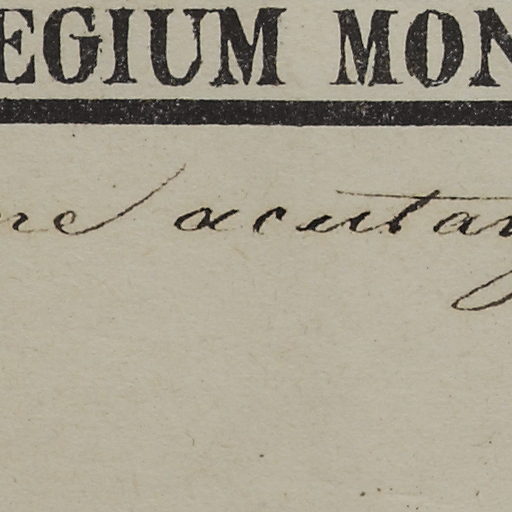 EGIUM MON
ne acutan